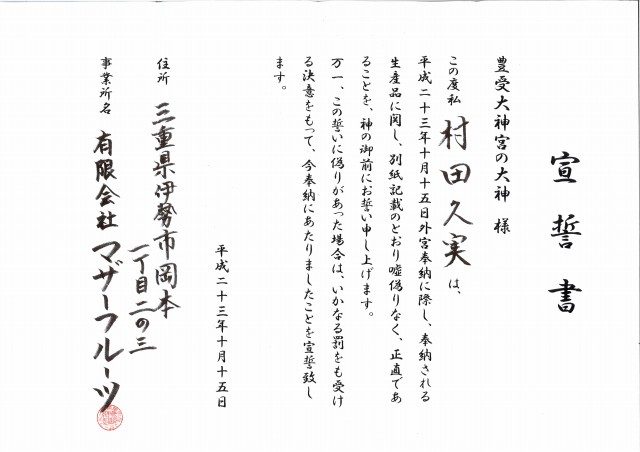 宣誓書
豊受大神宮の大神 様
この度私 村田久実 は、
平成二十三年十月十五日外宮奉納に際し、奉納される
生産品に関し、別紙記載のとおり嘘偽りなく、正直であ
ることを、神の御前にお誓い申し上げます。
万一、この誓いに偽りがあった場合は、いかなる罰をも受け
る決意をもって、今奉納にあたりましたことを宣誓致し
ます。
平成二十三年十月十五日
住所 三重県伊勢市岡本
一丁目二の三
事業所名 有限会社 マザーフルーツ